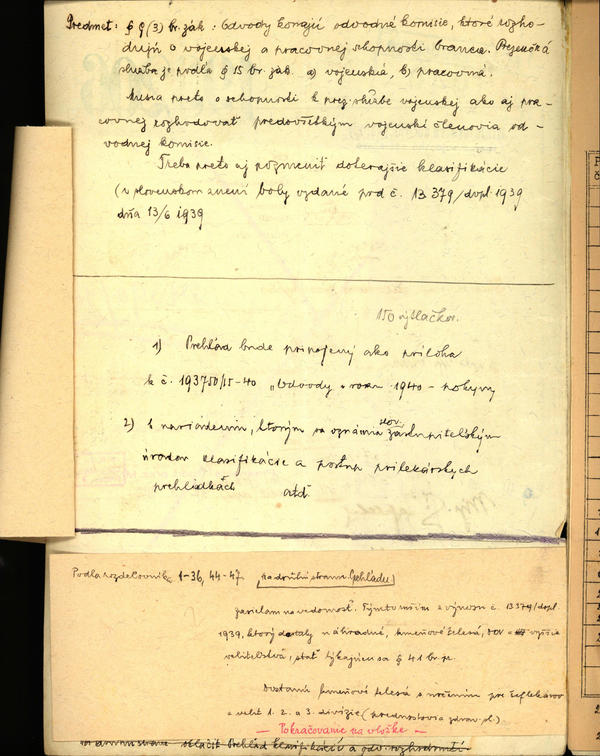 Predmet: § 9 (3) br. zák: Odvody konajú odvodné komisie, ktoré rozho-
dujú o vojenskej a pracovnej schopnosti branca. Prezenčná
služba je podľa § 15 br. zák. a) vojenská, b) pracovná.
Musia preto o schopnosti k prez. službe vojenskej ako aj pra-
covnej rozhodovať predovšetkým vojenskí členovia od-
vodnej komisie.
Treba preto aj pozmeniť doterajšie klasifikácie
(v slovenskom znení boly vydané pod č. 13379/dopl. 1939
dňa 13/6 1939
150 výtlačkov.
1) Prehľad bude pripojený ako príloha
k č. 193750/15-40 „Odvody v roku 1940 - pokyny
2) k nariadeniu, ktorým sa oznámia slov. zastupiteľským
úradom klasifikácie a postup pri lekárskych
prehliadkach atď.
Podľa rozdeľovníka 1-36, 44-47 na druhú stranu Prehľadu
zasielam na vedomosť. Týmto ruším výnos č. 13379/dopl.
1939, ktorý dostaly náhradné, kmeňové telesá, a vyššie
veliteľstvá, stať týkajúcu sa § 41 br. p.
Dostanú kmeňové telesá s určením pre šeflekárov
a velit. 1. 2. a 3. divízie (prednostovia zdrav. sl.)
— Pokračovanie na vložke —
Prehľad klasifikácií a odv. rozhodnutí